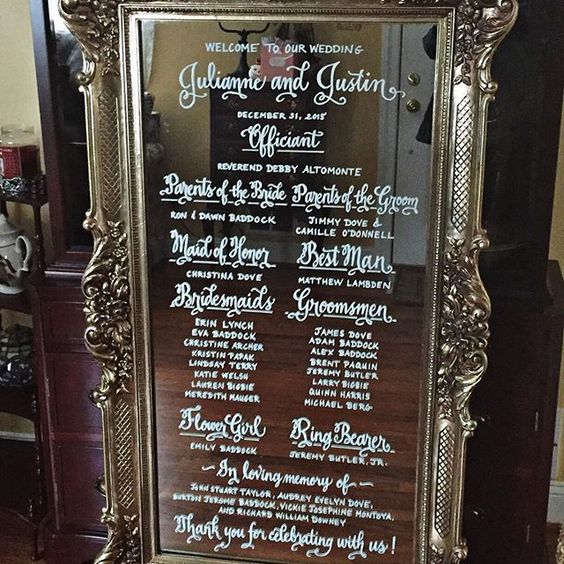 WELCOME TO OUR WEDDING
Julianne and Justin
DECEMBER 31, 2015
Officiant
REVEREND DEBBY ALTOMONTE
Parents of the Bride Parents of the Groom
RON & DAWN BADDOCK
JIMMY DOVE &
CAMILLE O'DONNELL
Maid of Honor
CHRISTINA DOVE
Best Man
MATTHEW LAMBDEN
Bridesmaids
ERIN LYNCH
EVA BADDOCK
CHRISTINE ARCHER
KRISTIN PAPAK
LINDSAY TERRY
KATIE WELSH
LAUREN BIGBIE
MEREDITH HAUGER
Groomsmen
JAMES DOVE
ADAM BADDOCK
ALEX BADDOCK
BRENT PAQUIN
JEREMY BUTLER
LARRY BIGBIE
QUINN HARRIS
MICHAEL BERG
Flower Girl
EMILY BADDOCK
Ring Bearer
JEREMY BUTLER, JR.
~ In loving memory of ~
JOHN STUART TAYLOR, AUDREY EVELYN DOVE,
BURTON JEROME BADDOCK, VICKIE JOSEPHINE MONTOYA,
AND RICHARD WILLIAM DOWNEY
Thank you for celebrating with us!